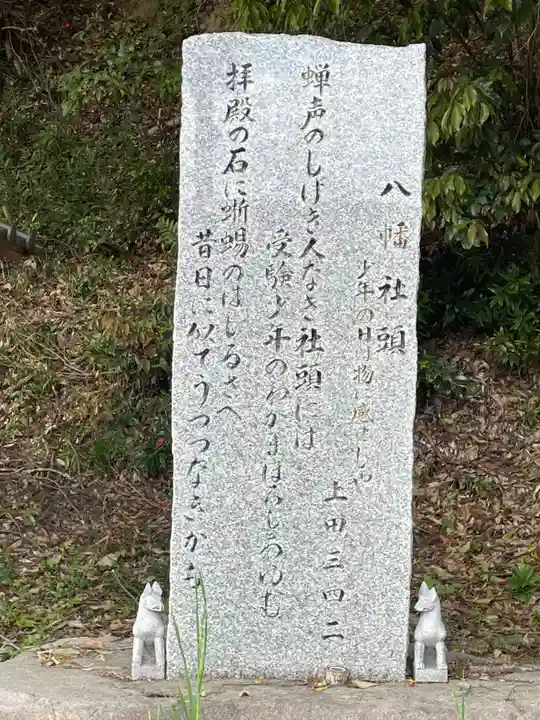 八幡社頭
少年の日は物に感ぜしや
上田三四二
蝉声のしげき人なき社頭には
受験少年のわがまぼろしあゆむ
拝殿の石に蜥蜴のはしるさへ
昔日に似てうつつなきかも